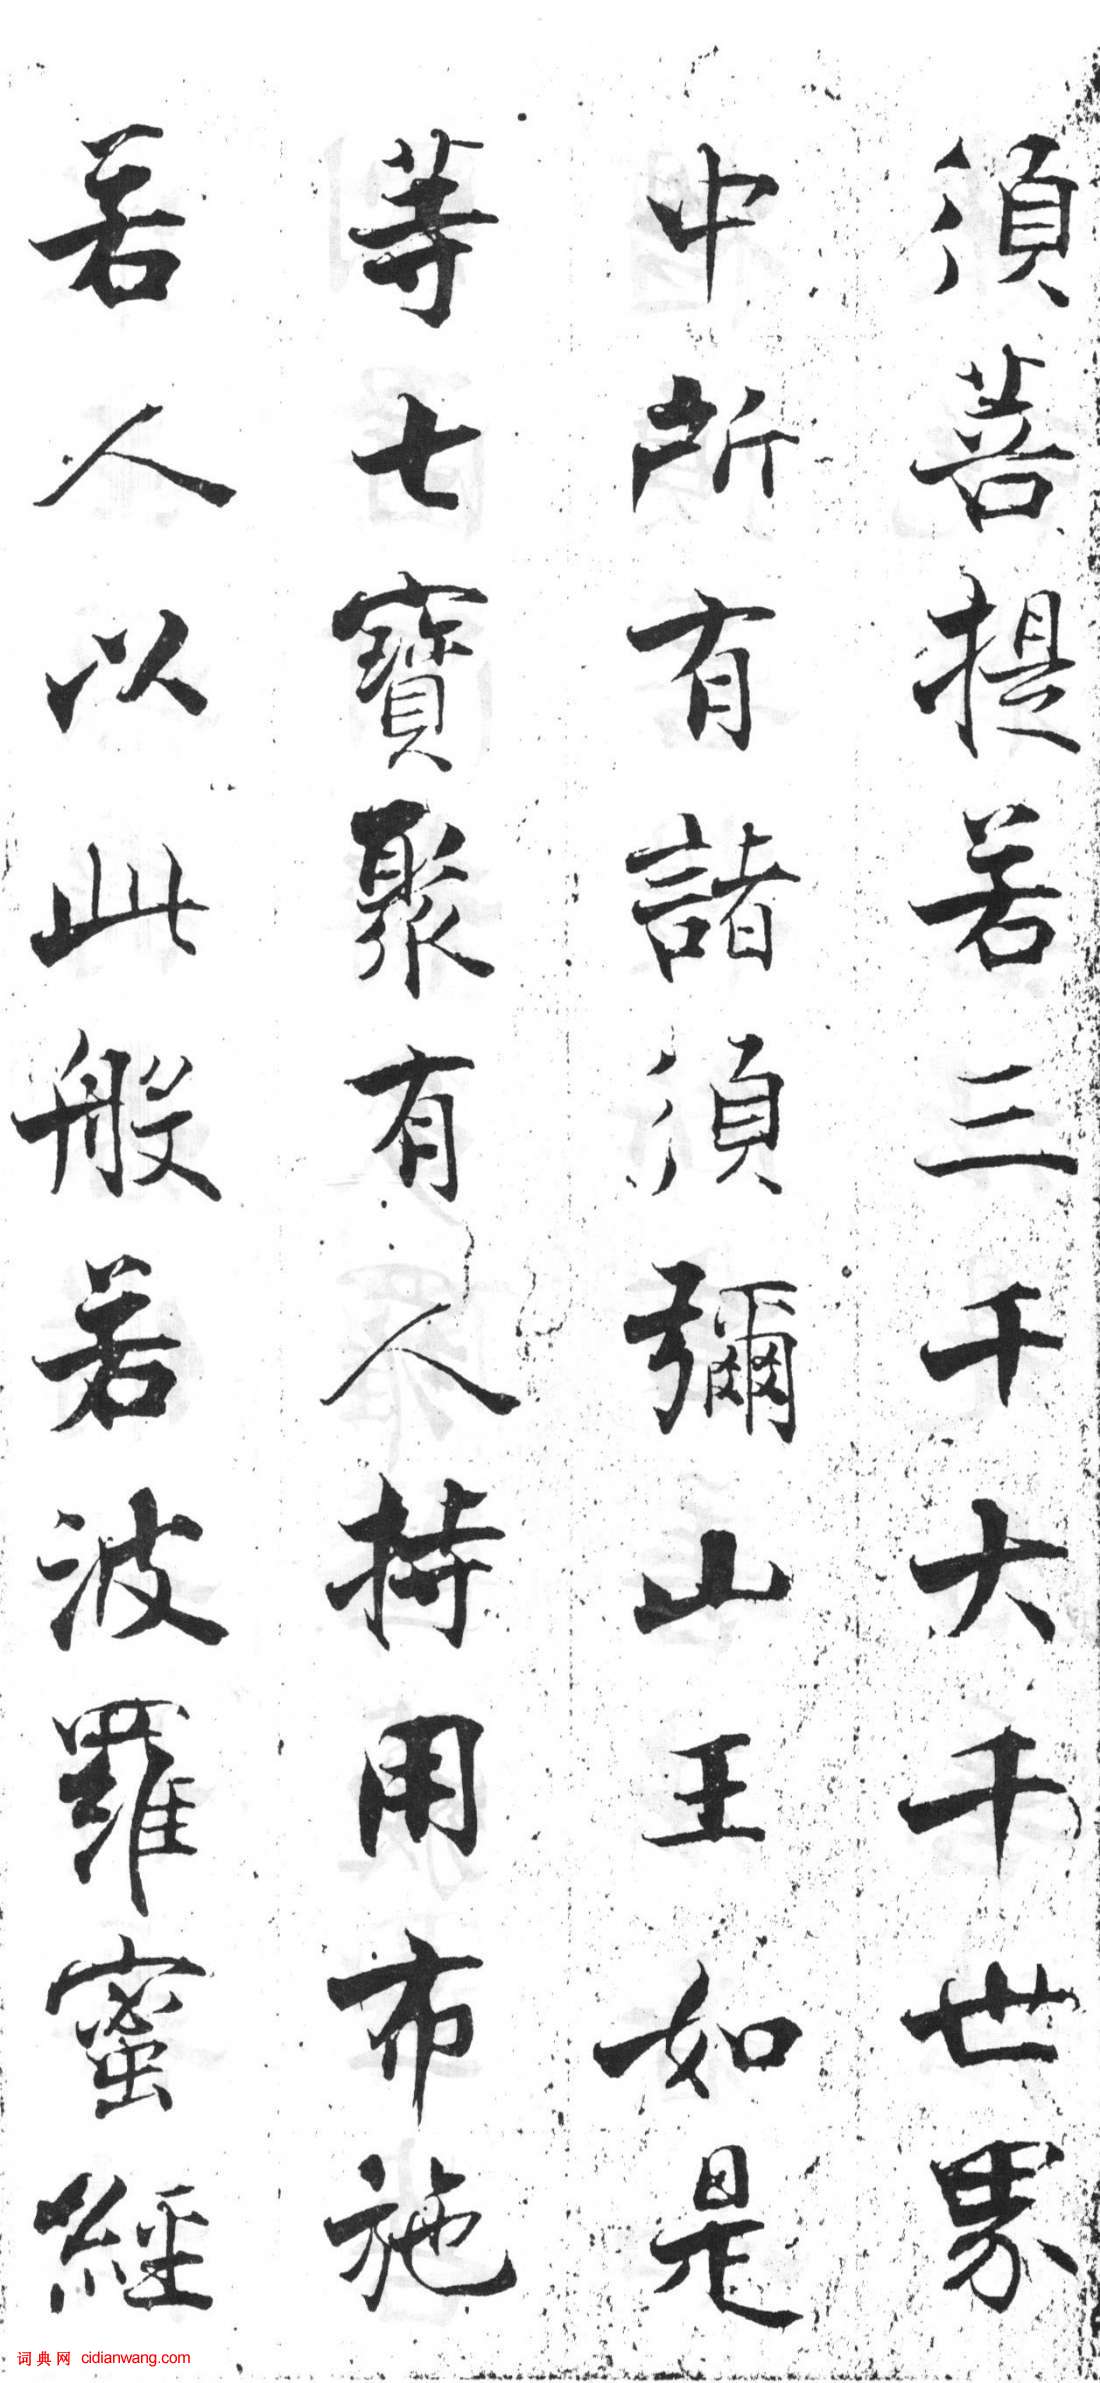 須菩提若三千大千世界
中所有諸須彌山王如是
等七寶聚有人持用布施
若人以此般若波羅蜜經
词典网 cidianwang.com